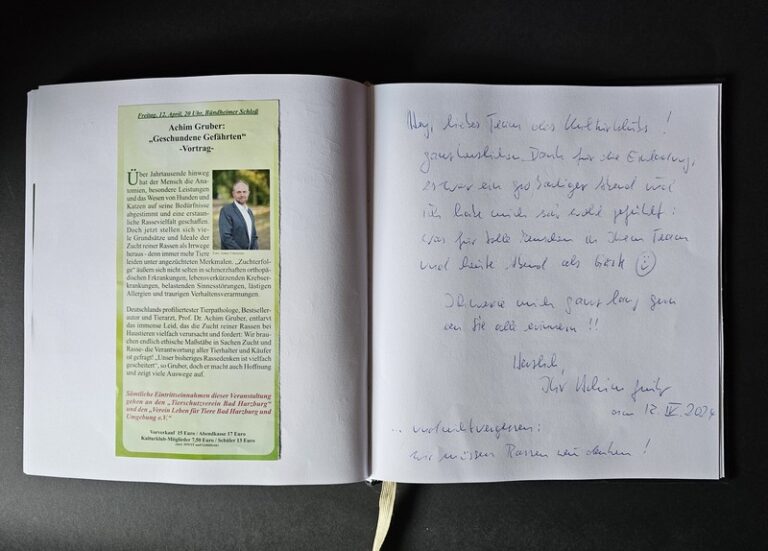 Freitag, 12. April, 20 Uhr, Bündheimer Schloß
Achim Gruber:
„Geschundene Gefährten“
-Vortrag-
Über Jahrtausende hinweg
hat der Mensch die Ana-
tomien, besondere Leistungen
und das Wesen von Hunden und
Katzen auf seine Bedürfnisse
abgestimmt und eine erstaun-
liche Rassevielfalt geschaffen.
Doch jetzt stellen sich vie-
le Grundsätze und Ideale der
Zucht reiner Rassen als Irrwege
heraus - denn immer mehr Tiere
leiden unter angezüchteten Merkmalen. „Zuchterfol-
ge“ äußern sich nicht selten in schmerzhaften orthopä-
dischen Erkrankungen, lebensverkürzenden Krebser-
krankungen, belastenden Sinnesstörungen, lästigen
Allergien und traurigen Verhaltensverarmungen.
Deutschlands profiliertester Tierpathologe, Bestseller-
autor und Tierarzt, Prof. Dr. Achim Gruber, entlarvt
das immense Leid, das die Zucht reiner Rassen bei
Haustieren vielfach verursacht und fordert: Wir brau-
chen endlich ethische Maßstäbe in Sachen Zucht und
Rasse- die Verantwortung aller Tierhalter und Käufer
ist gefragt! „Unser bisheriges Rassedenken ist vielfach
gescheitert“, so Gruber, doch er macht auch Hoffnung
und zeigt viele Auswege auf.
Sämtliche Eintrittseinnahmen dieser Veranstaltung
gehen an den „Tierschutzverein Bad Harzburg“
und den „Verein Leben für Tiere Bad Harzburg und
Umgebung e.V.“
Vorverkauf 15 Euro / Abendkasse 17 Euro
Kulturklub-Mitglieder 7,50 Euro / Schüler 13 Euro
liebes Team des Kulturklubs!
ganz herzlichen Dank für die Einladung,
es war ein großartiger Abend und
ich habe mich sehr wohl gefühlt:
was für tolle Menschen in Ihrem Team
und heute Abend als Gäste
Ich werde mich ganz lang gern
an Sie alle erinnern!!
Herzlich,
Ihr Achim Gruber
am 12. IV. 2024
... und nicht vergessen:
wir müssen Rassen neu denken!